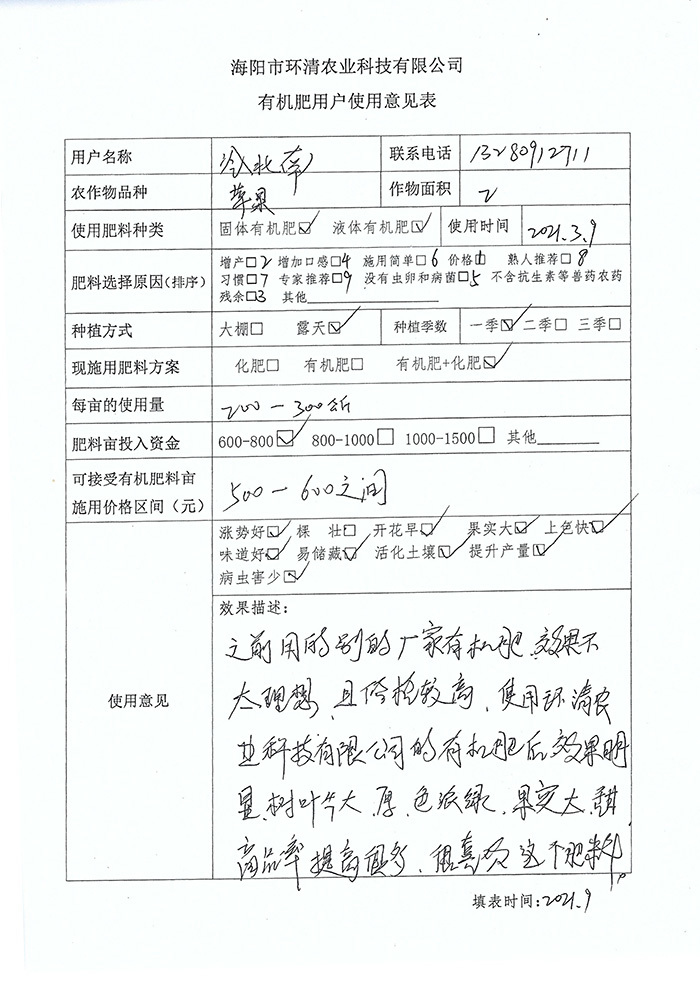 海阳市环清农业科技有限公司
有机肥用户使用意见表
用户名称 冷北 联系电话 13280912711
农作物品种 苹果 作物面积 2
使用肥料种类 固体有机肥☑ 液体有机肥☑ 使用时间 2021.3.9
肥料选择原因(排序) 增产□2 增加口感□4 施用简单□6 价格□1 熟人推荐□8
习惯□7 专家推荐□9 没有虫卵和病菌□5 不含抗生素等兽药农药
残余□3 其他
种植方式 大棚□ 露天☑ 种植季数 一季☑ 二季□ 三季□
现施用肥料方案 化肥□ 有机肥□ 有机肥+化肥☑
每亩的使用量 200—300公斤
肥料亩投入资金 600-800☑ 800-1000□ 1000-1500□ 其他
可接受有机肥料亩
施用价格区间（元） 500—600之间
涨势好☑ 棵 壮□ 开花早☑ 果实大☑ 上色快☑
味道好☑ 易储藏☑ 活化土壤☑ 提升产量☑
病虫害少☑
使用意见
效果描述：
之前用的别的厂家有机肥，效果不
太理想，且价格较高，使用环清农
业科技有限公司的有机肥后效果明
显，树叶大，厚，色浓绿，果实大，甜
商品率提高很多，很喜欢这个肥料。
填表时间:2021.9